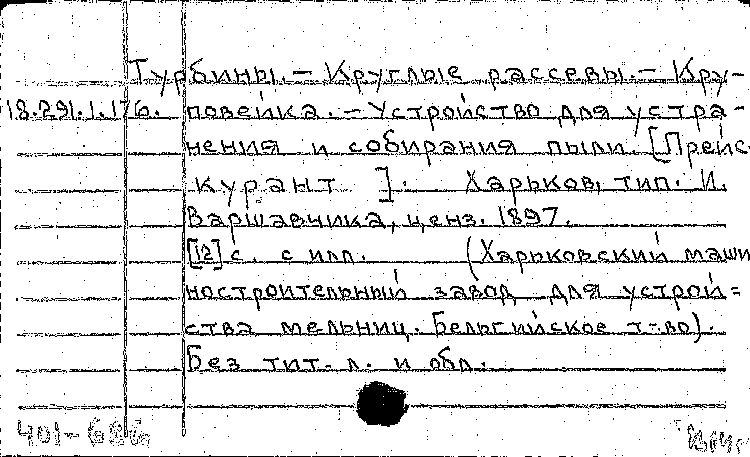 Турбины. — Круглые рассевы. — Кру-
18.291.1.176. повейка. — Устройство для устра-
нения и собирания пыли. [Прейс-
курант ]. Харьков, тип. И.
Варшавчика, ценз. 1897.
[12] с. с илл. (Харьковский маши
ностроительный завод для устрой=
ства мельниц. Бельгийское т-во).
Без тит. л. и обл.
401-68